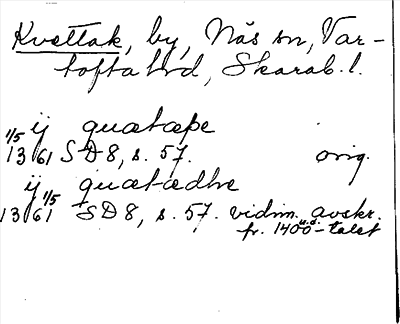 Kvättak, by, Näs sn, Var-
tofta hd, Skarab. l.
ij quætæþe
1/5 1361 SD 8, s. 57. orig.
ij quætædhe
1/5 1361 SD 8, s. 57. vidim. avskr.
fr. 1400-talet